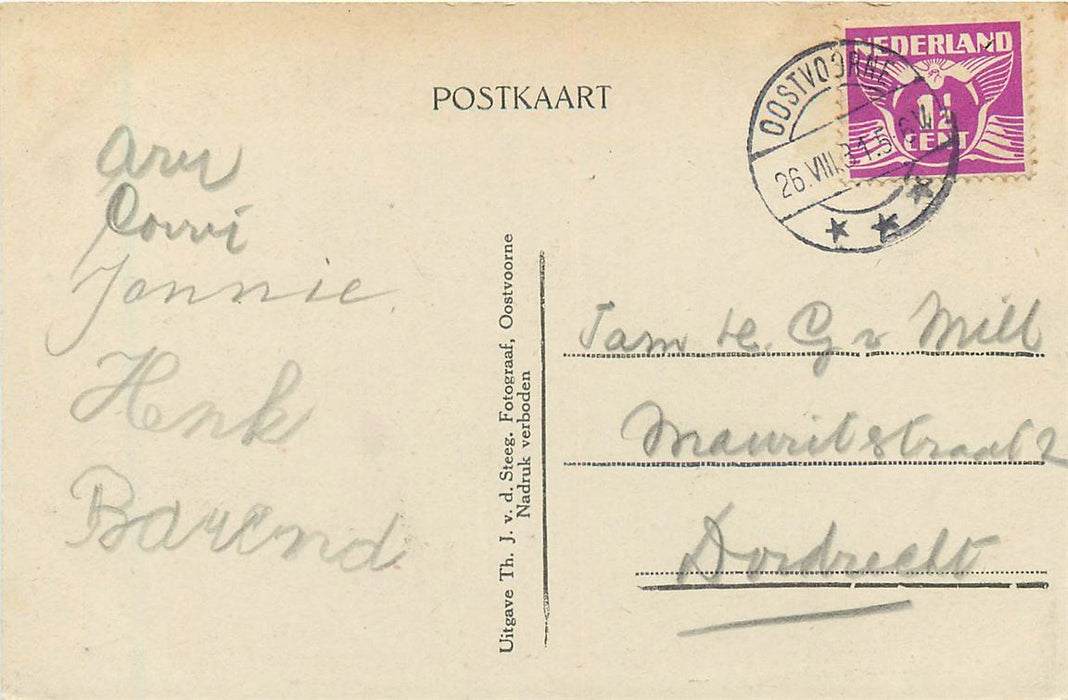 POSTKAART
NEDERLAND
1½
CENT
OOSTVOORNE
26.VIII.
Corri
Jannie
Henk
Barend
Uitgave Th. J. v. d. Steeg. Fotograaf, Oostvoorne
Nadruk verboden
Fam G v Mill
Mauritsstraat 2
Dordrecht